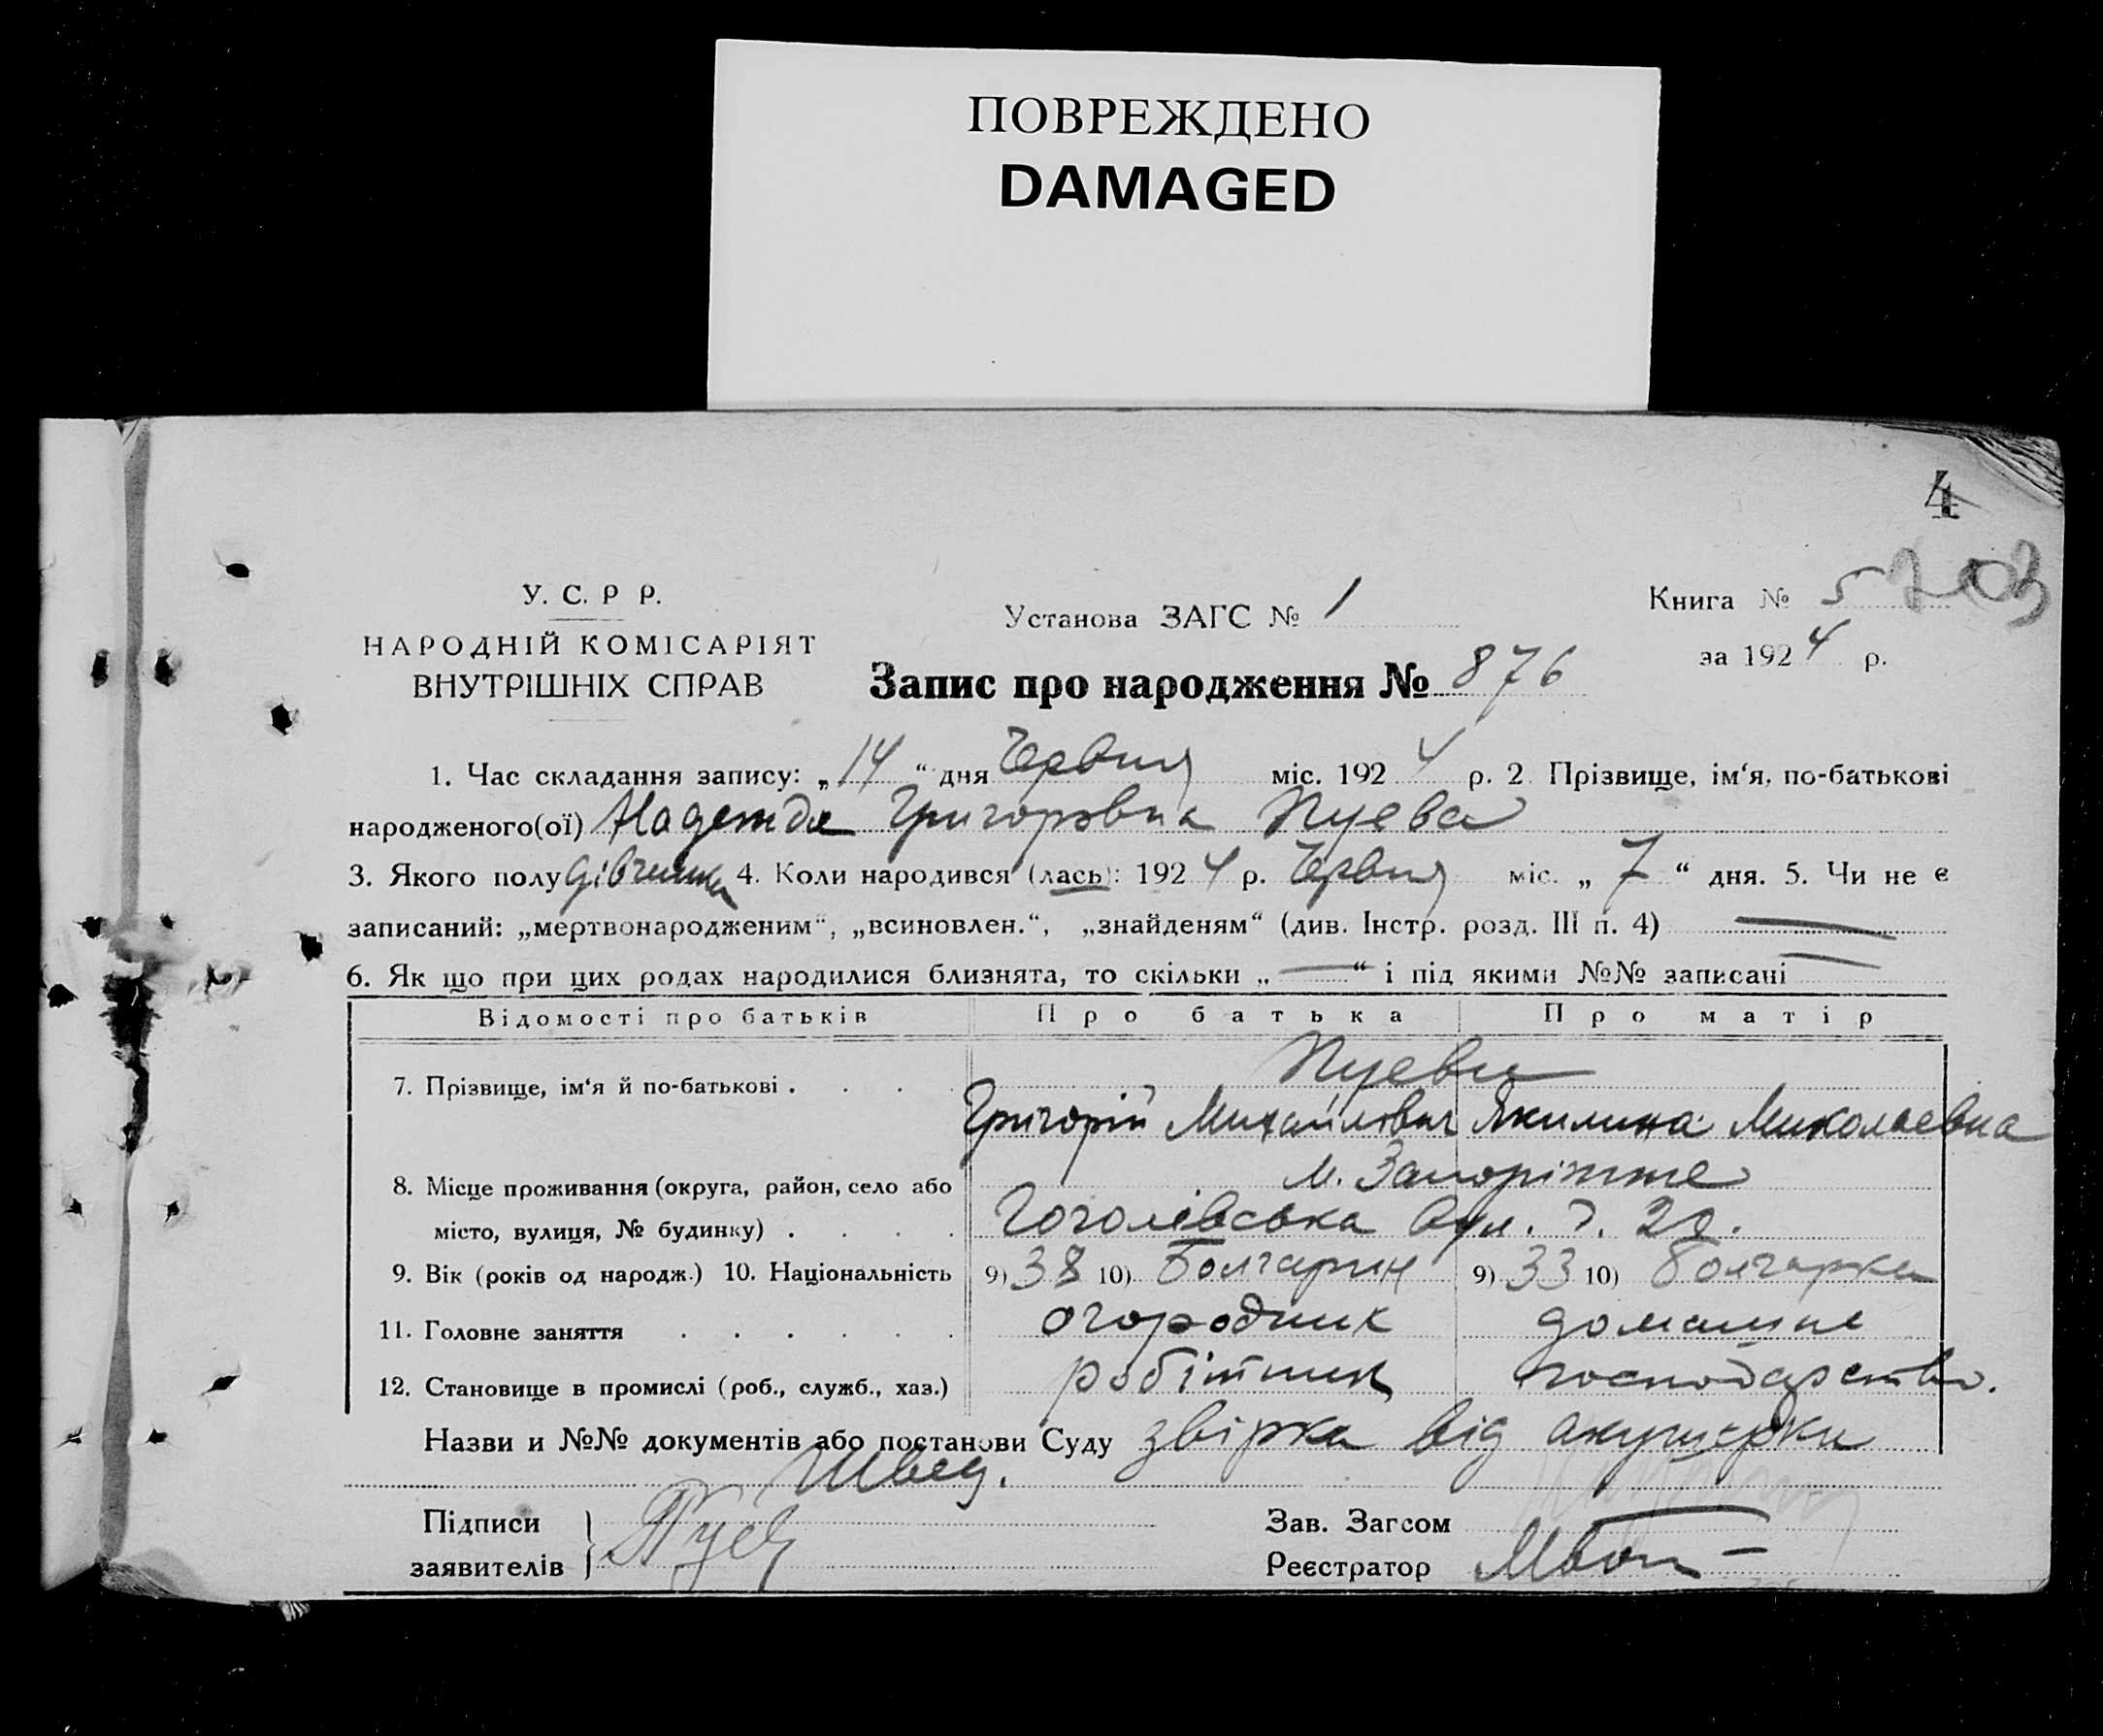 ПОВРЕЖДЕНО
DAMAGED
4
У. С. Р Р.
НАРОДНІЙ КОМІСАРІЯТ
ВНУТРІШНІХ СПРАВ
Установа ЗАГС № 1
Запис про народження № 876
Книга № 5 703
за 1924 р.
1. Час складання запису: „14“ дня Червня міс. 1924 р. 2 Прізвище, ім‘я, по-батькові
народженого(ої) Надежда Григоровна Пуева
3. Якого полу дівчинка 4. Коли народився (лась): 1924 р. Червня міс. „7“ дня. 5. Чи не є
записаний: „мертвонародженим“, „всиновлен.“, „знайденям“ (див. Інстр. розд. III п. 4) —
6. Як що при цих родах народилися близнята, то скільки „—“ і під якими №№ записані —
Відомості про батьків Про батька Про матір
7. Прізвище, ім‘я й по-батькові . . . Пуеви
Григорій Михайлович Якилина Миколаевна
8. Місце проживання (округа, район, село або м. Запоріжже
місто, вулиця, № будинку) . . . . Гоголівська вул.
9. Вік (років од народж.) 10. Національність 9) 38 10) Болгарин 9) 33 10) Болгарка
11. Головне заняття . . . . . . огородник домашне
12. Становище в промислі (роб., служб., хаз.) робітник господарство.
Назви и №№ документів або постанови Суду звірка від акушерки
Швец.
Підписи
заявителів Пуев
Зав. Загсом
Реєстратор